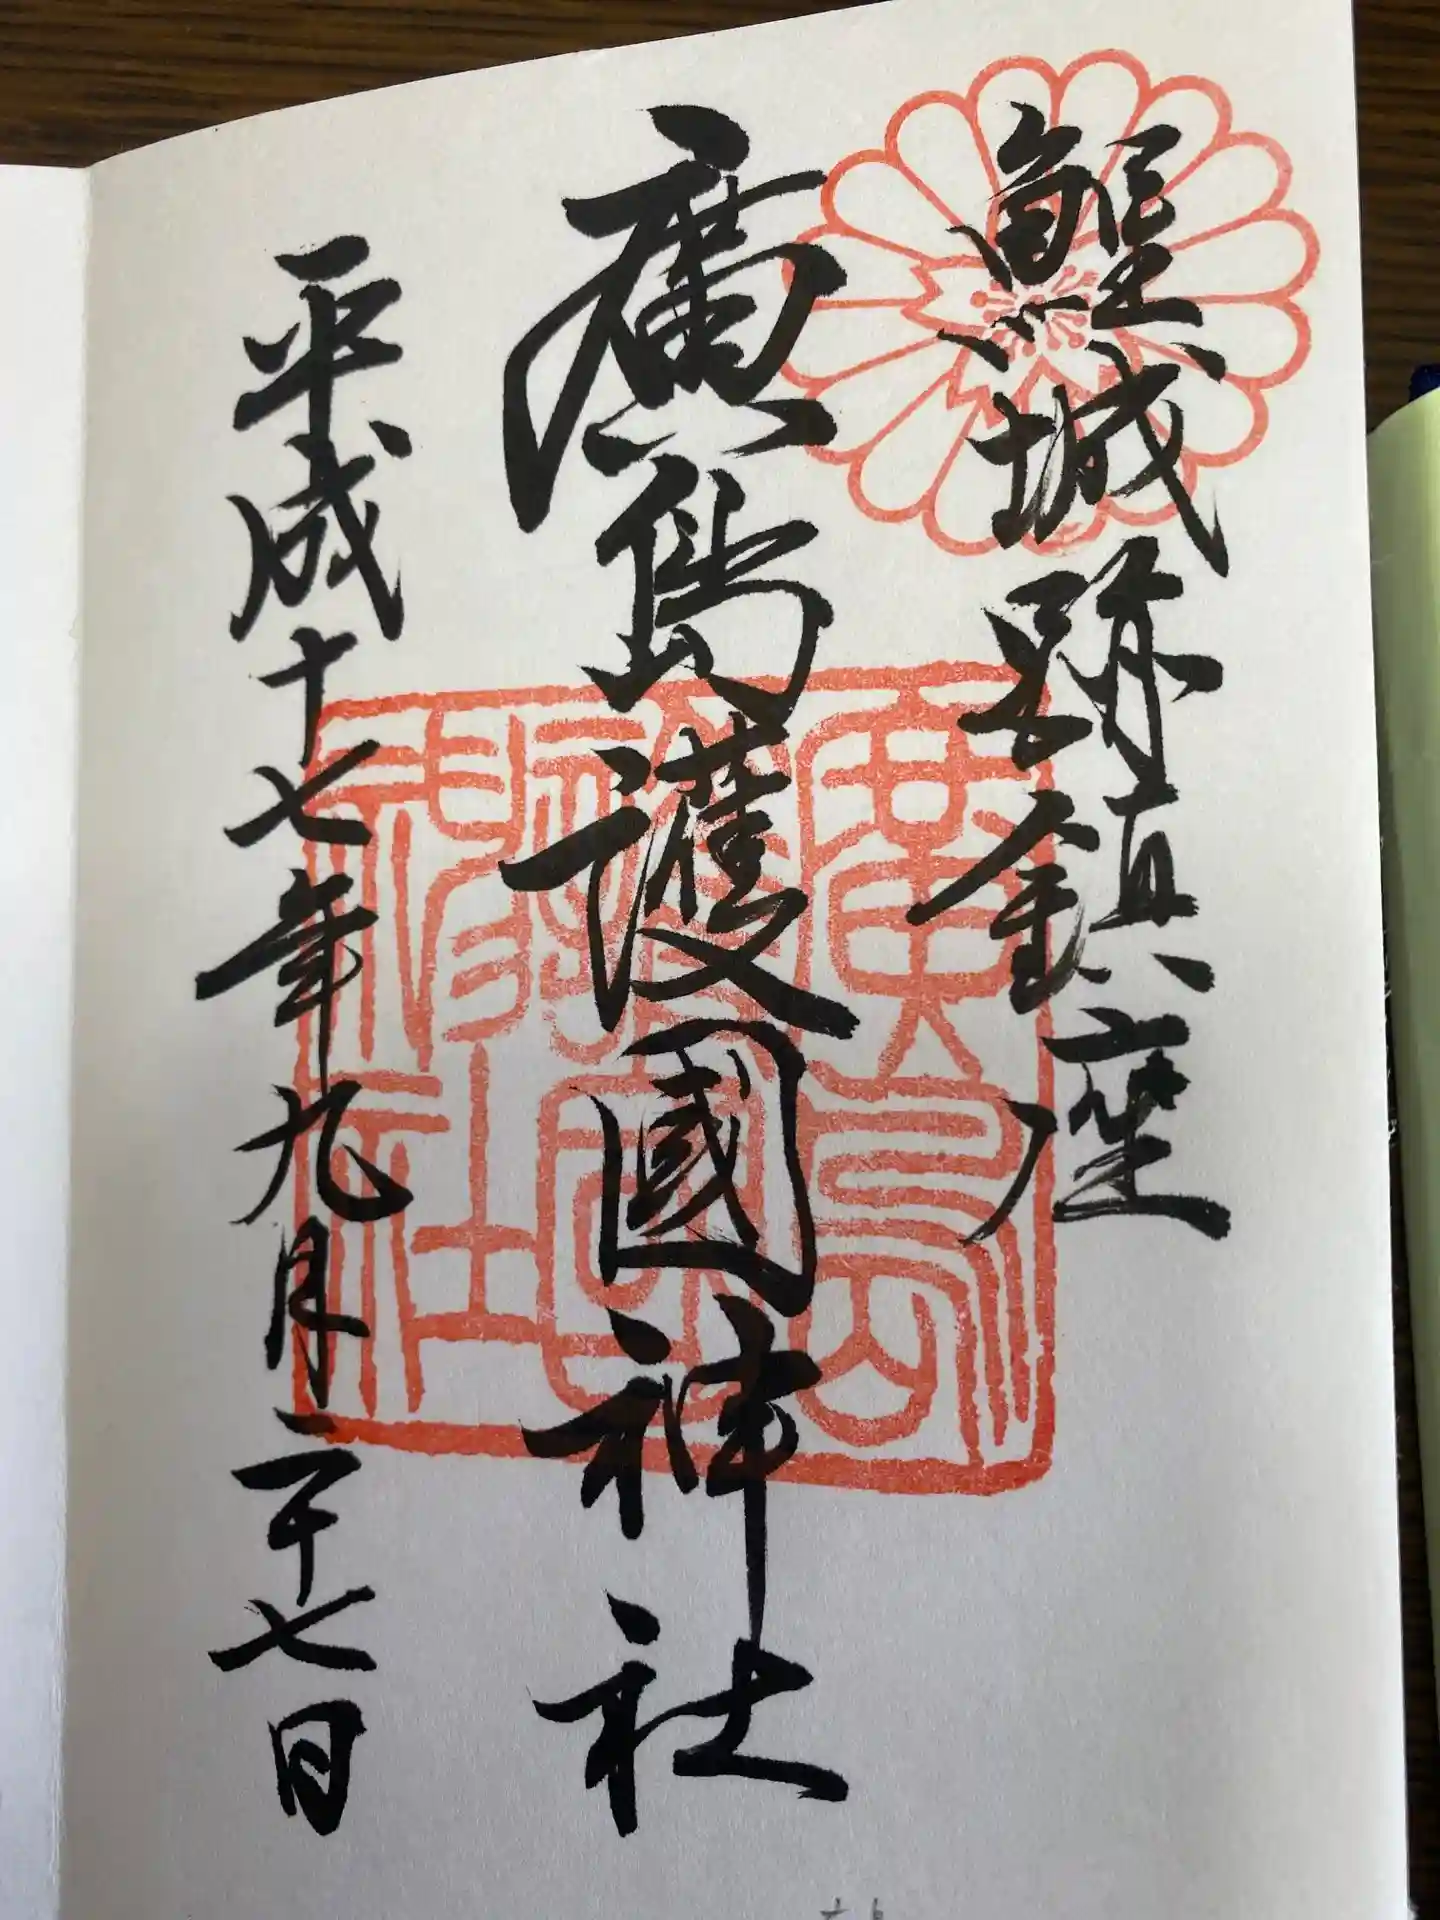 鯉城跡鎮座
廣島護國神社
平成十七年九月二十七日
廣島護國神社